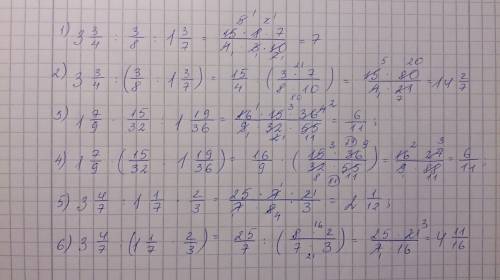 1) 3 3/4 : 3/8 : 1 3/7 = 15·8·7/4·3·10 = 7
2) 3 3/4 : (3/8 : 1 3/7) = 15/4 : (3·7/8·10) = 15·80/4·21 = 14 2/7
3) 1 7/9 · 15/32 : 1 19/36 = 16·15·36/9·32·55 = 6/11;
4) 1 7/9 · (15/32 : 1 19/36) = 16/9 · (15·36/32·55) = 16·27/9·88 = 6/11;
5) 3 4/7 : 1 1/7 · 2/3 = 25·7·2/7·8·3 = 2 1/12;
6) 3 4/7 : (1 1/7 · 2/3) = 25/7 : (8·2/7·3) = 25·21/7·16 = 4 11/16